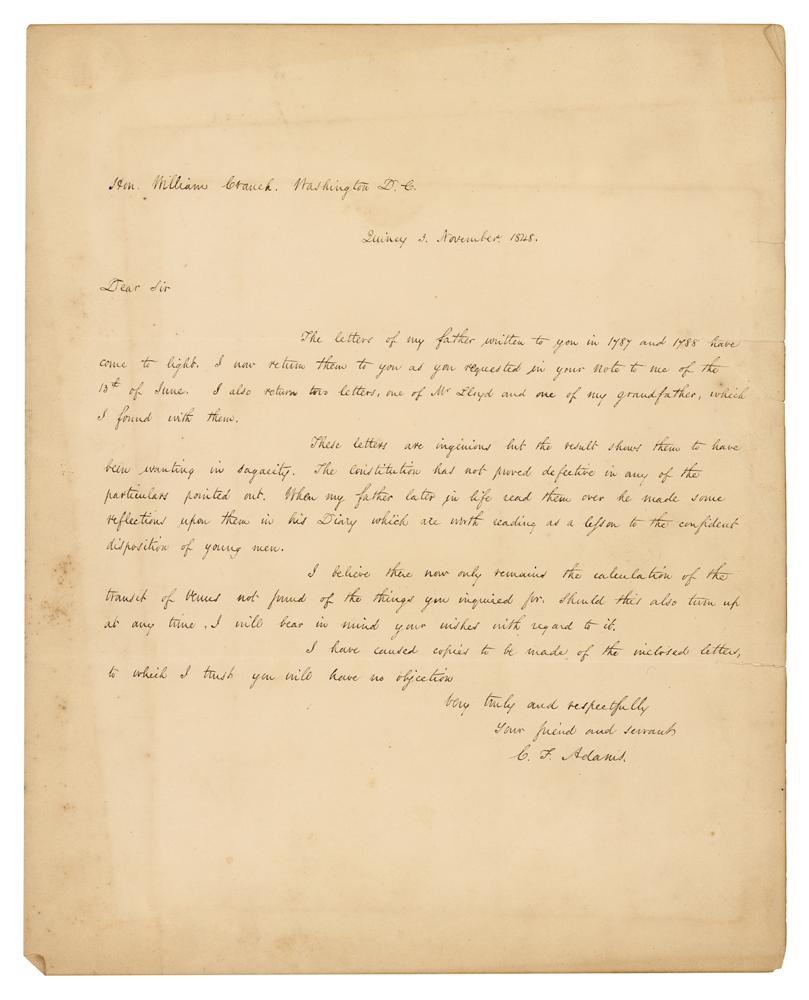 Hon. William Cranch. Washington D. C.
Quincy 3. November. 1848.
Dear Sir
The letters of my father written to you in 1787 and 1788 have
come to light. I now return them to you as you requested in your note to me of the
13th of June. I also return two letters, one of Mr Lloyd and one of my grandfather, which
I found with them.
These letters are ingenious but the result shows them to have
been wanting in sagacity. The constitution has not proved defective in any of the
particulars pointed out. When my father later in life read them over he made some
reflections upon them in his Diary which are worth reading as a lesson to the confident
disposition of young men.
I believe there now only remains the calculation of the
transit of Venus not found of the things you inquired for. Should this also turn up
at any time, I will bear in mind your wishes with regard to it.
I have caused copies to be made of the inclosed letters,
to which I trust you will have no objection
Very truly and respectfully
Your friend and servant
C. F. Adams.